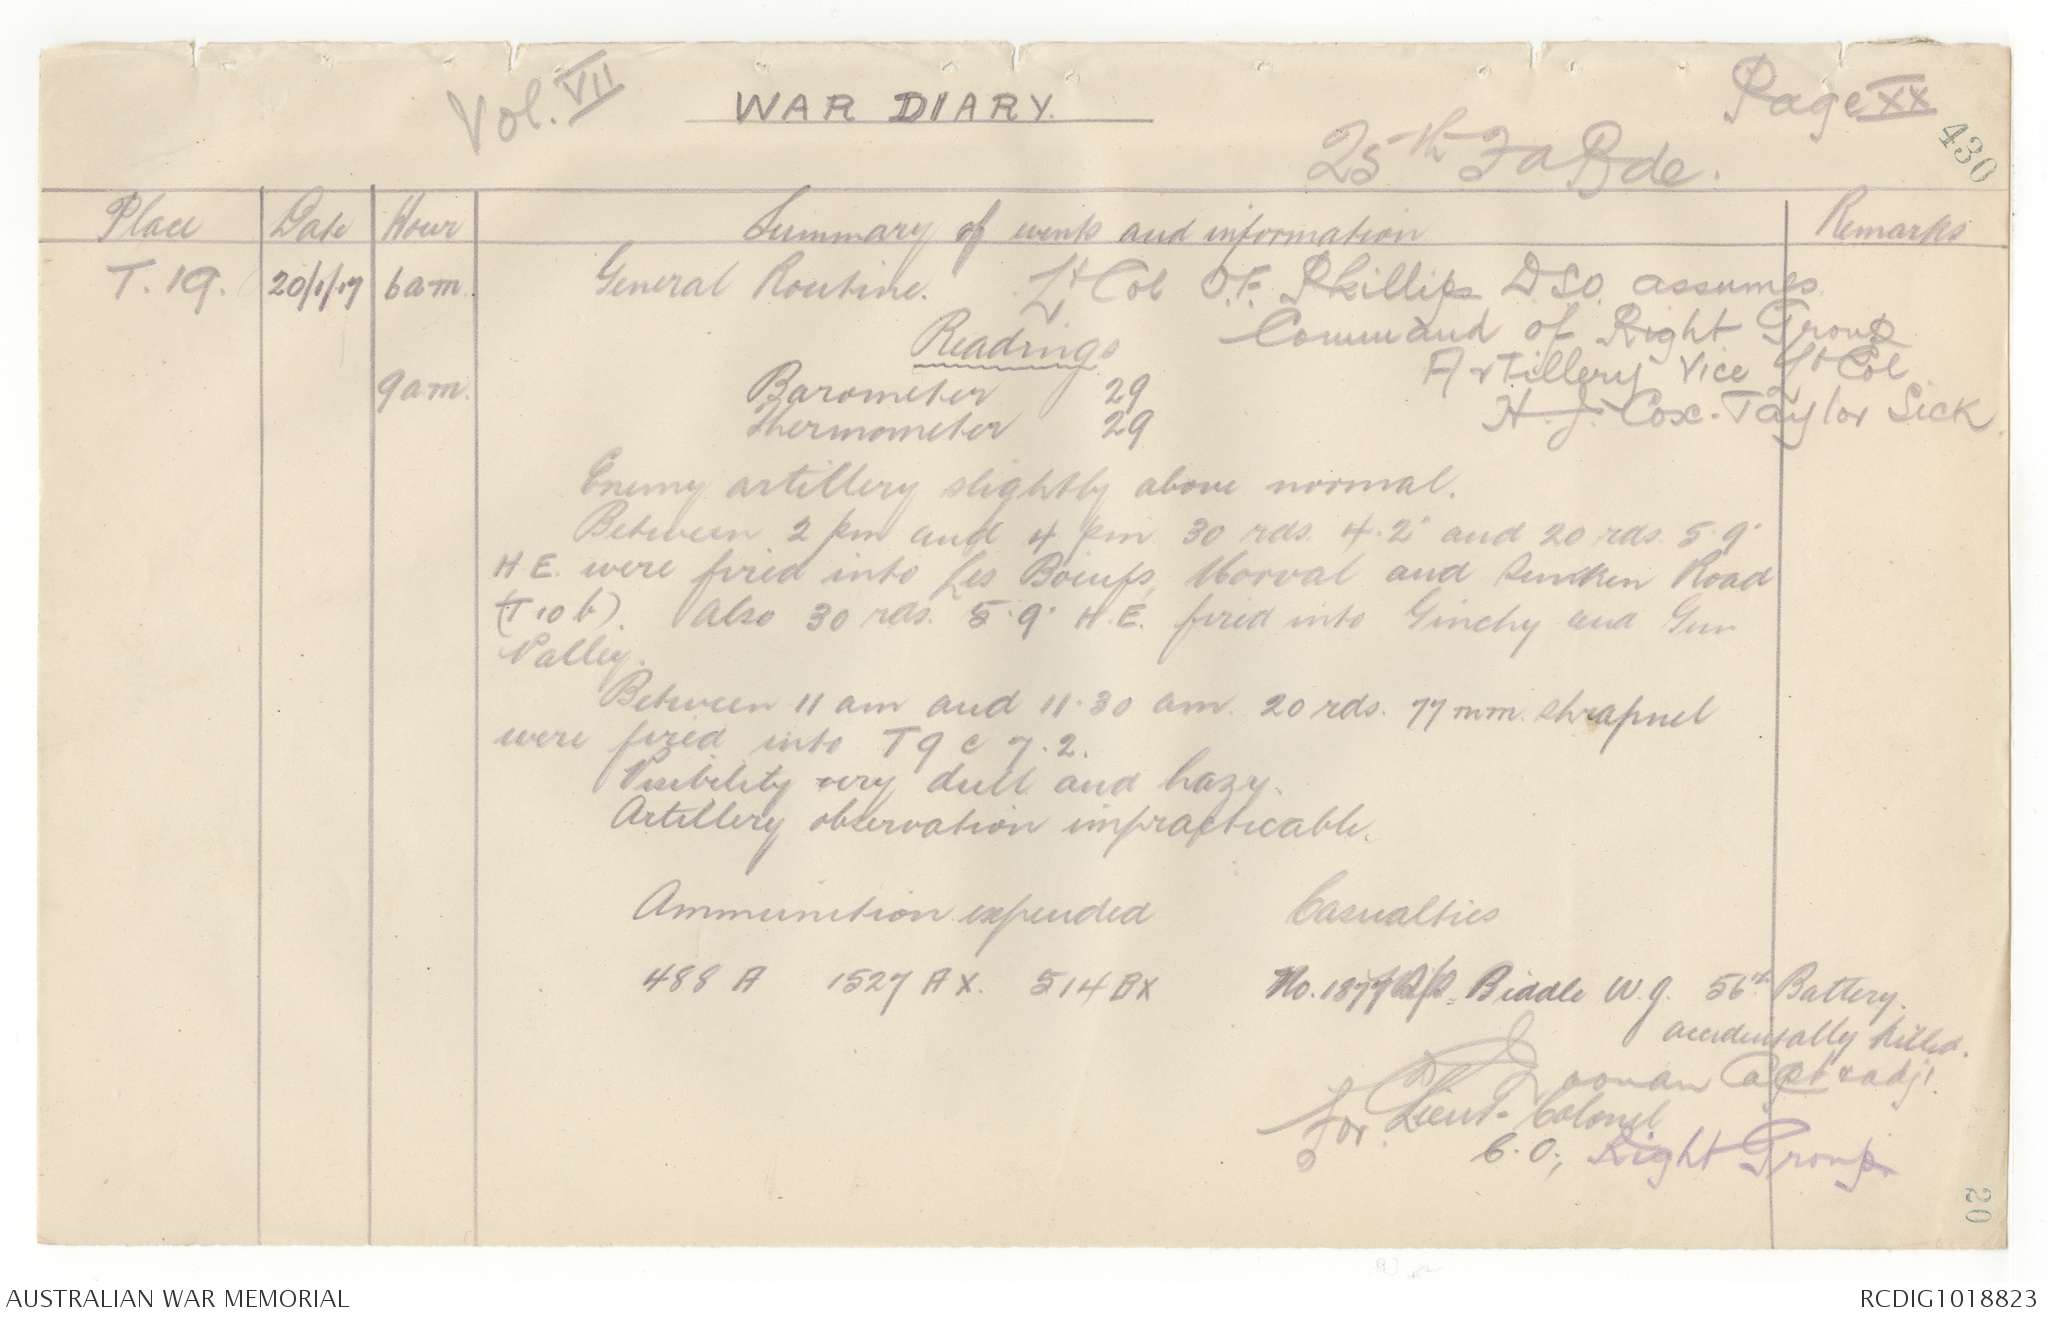 Vol. VII
WAR DIARY.
Page XX
25th FA Bde.
430
Place Date Hour Summary of events and information Remarks
T.19. 20/1/17 6 am. General Routine. Lt Col O.F. Phillips DSO. assumes
Command of Right Group
Artillery vice Lt Col
H. J. Cox-Taylor Sick.
Readings
9 am. Barometer 29
Thermometer 29
Enemy artillery slightly above normal.
Between 2 pm and 4 pm 30 rds. 4.2" and 20 rds. 5.9"
H.E. were fired into Les Boeufs, Morval and Sunken Road
(T 10 b). Also 30 rds. 5.9" H.E. fired into Ginchy and Gun
Valley.
Between 11 am and 11.30 am. 20 rds. 77 mm. shrapnel
were fired into T 9 c 7.2.
Visibility very dull and hazy.
Artillery observation impracticable.
Ammunition expended Casualties
488 A 1527 AX. 514 BX No. Biddle W.J. 56th Battery.
accidentally killed.
Capt & adjt.
For Lieut-Colonel
C.O., Right Group
20
AUSTRALIAN WAR MEMORIAL RCDIG1018823